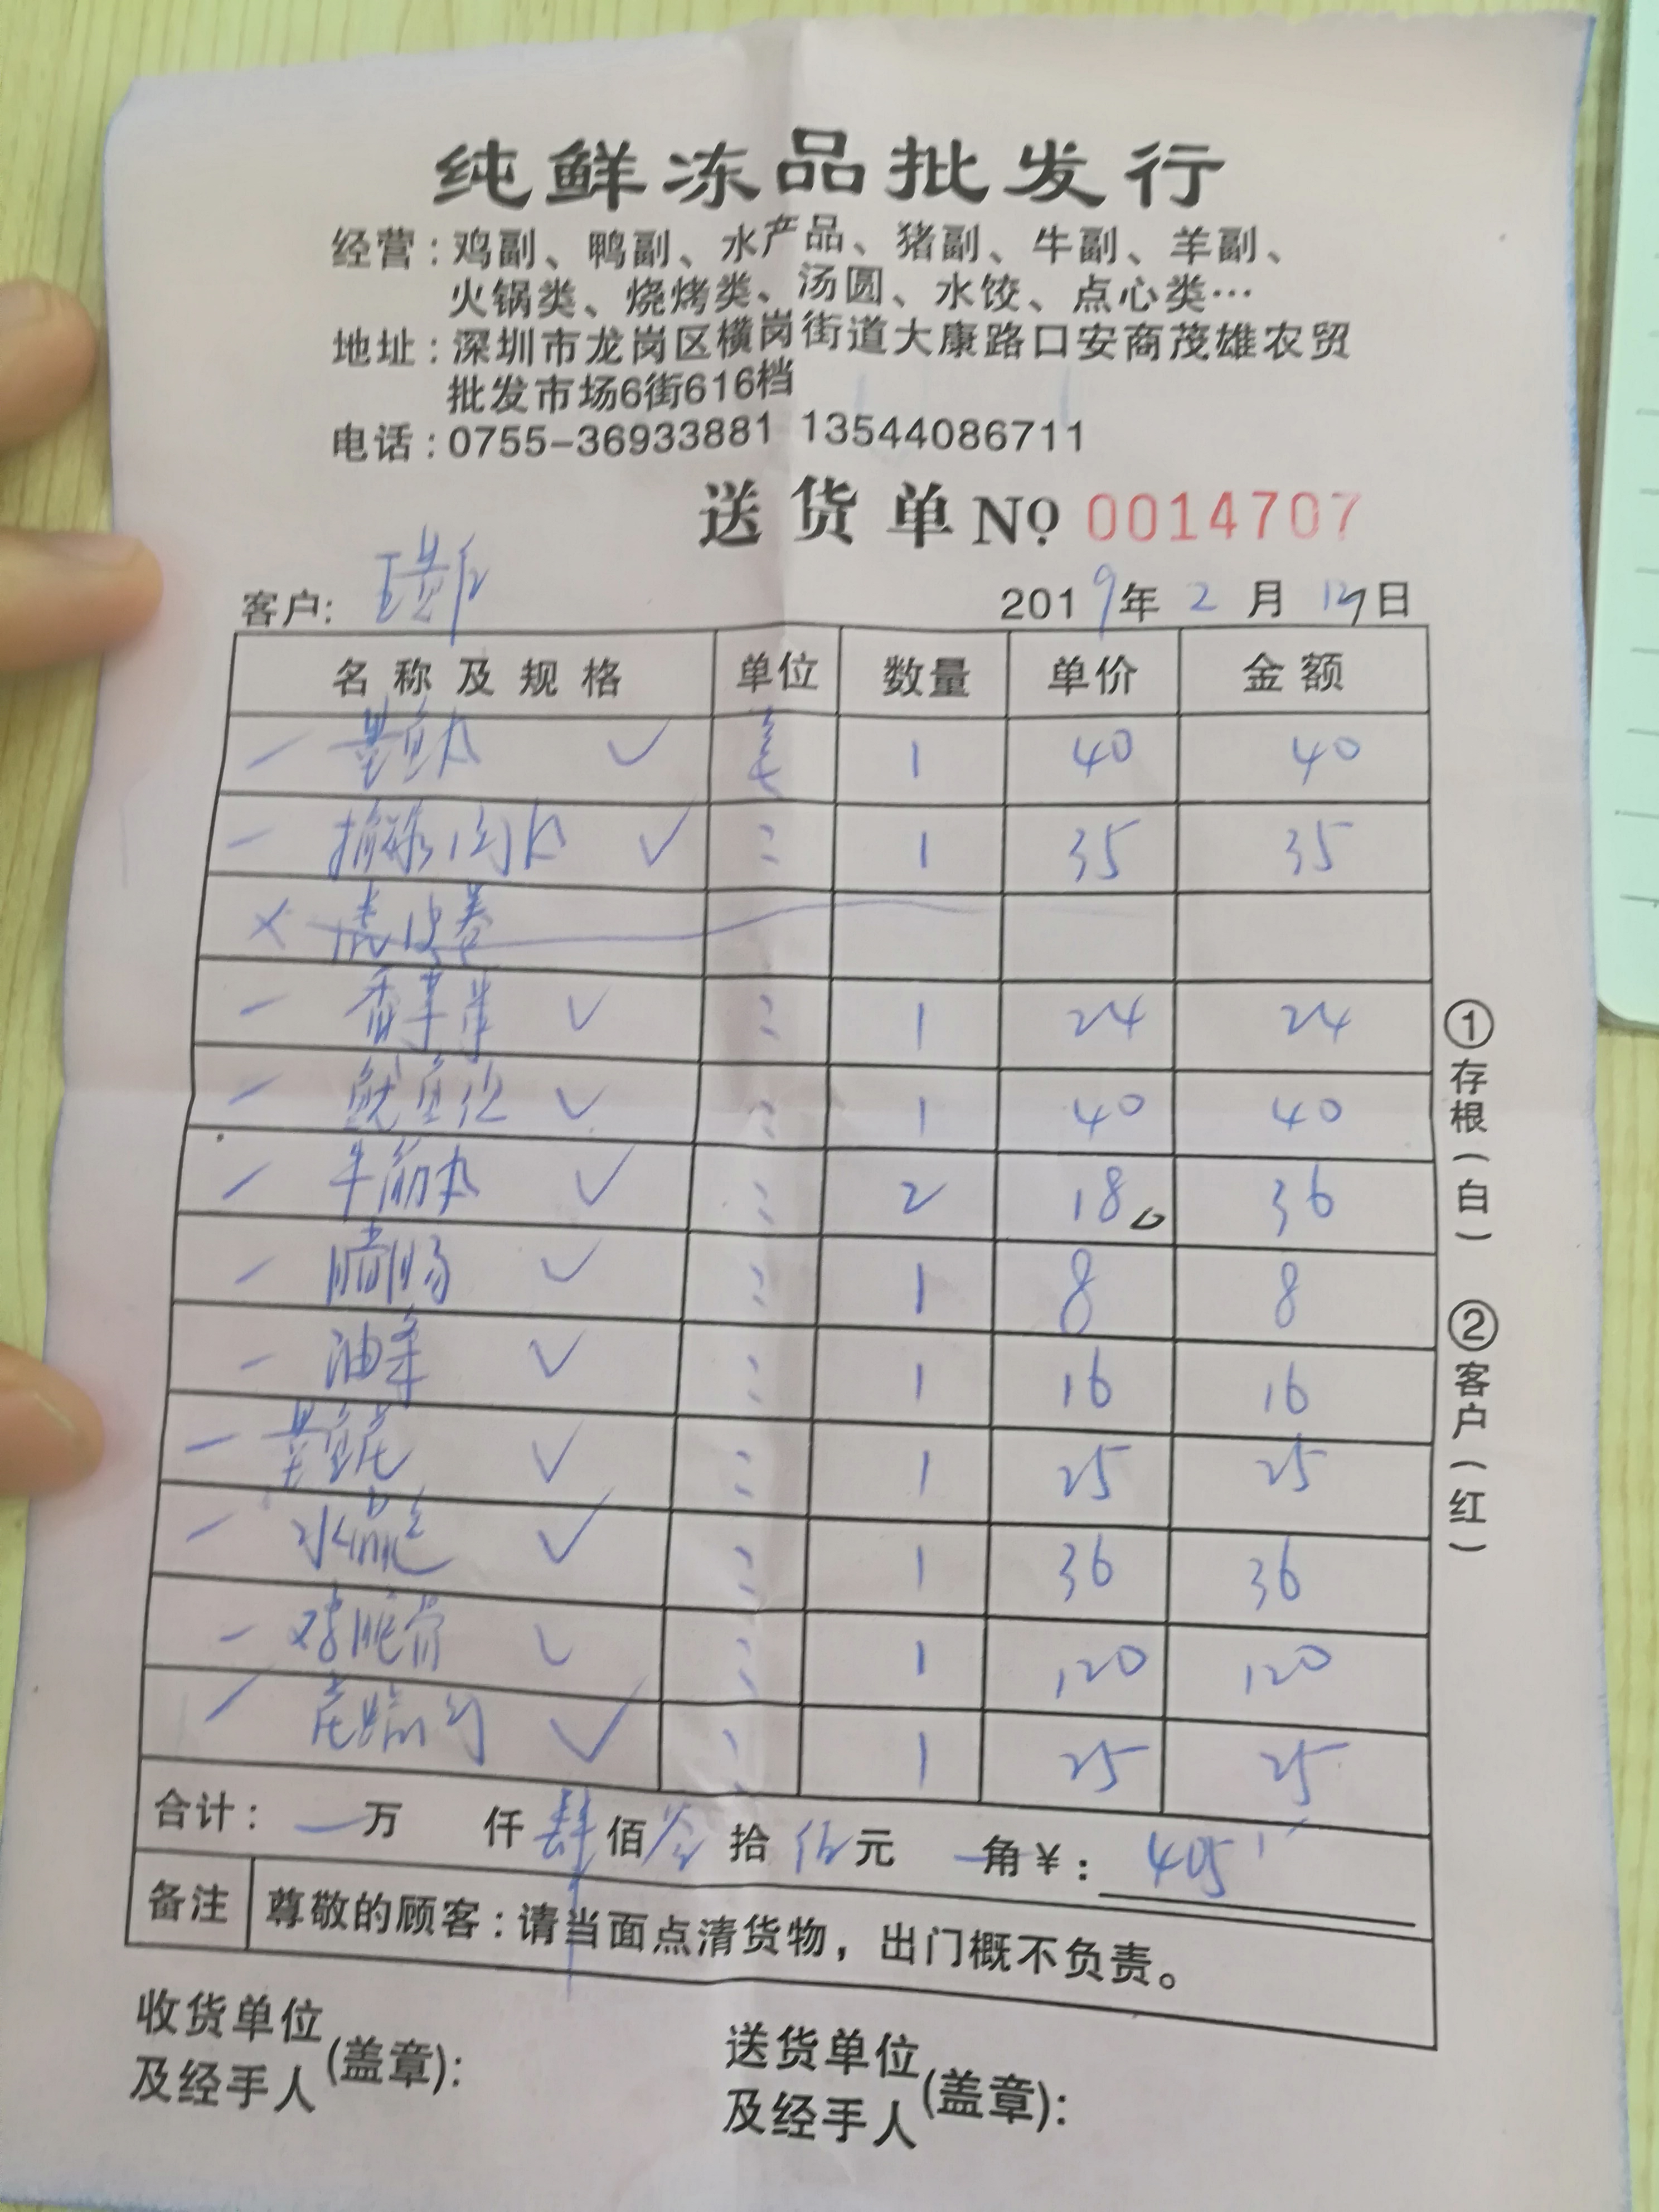 纯鲜冻品批发行
经营:鸡副、鸭副、水产品、猪副、牛副、羊副、
火锅类、烧烤类、汤圆、水饺、点心类…
地址:深圳市龙岗区横岗街道大康路口安商茂雄农贸
批发市场6街616档
电话:0755-36933881 13544086711
送货单 № 0014707
客户: 2019年 2月 日
名称及规格 单位 数量 单价 金额
墨鱼丸 1 40 40
1 35 35
1 24 24
鱿鱼 1 40 40
牛筋丸 2 18 36
1 8 8
油条 1 16 16
墨鱼 1 25 25
水晶包 1 36 36
1 120 120
1 25 25
合计: 万 仟 肆 佰 零 拾 伍 元 角 ¥: 405
备注 尊敬的顾客:请当面点清货物,出门概不负责。
①存根(白) ②客户(红)
收货单位 送货单位
及经手人(盖章): 及经手人(盖章):